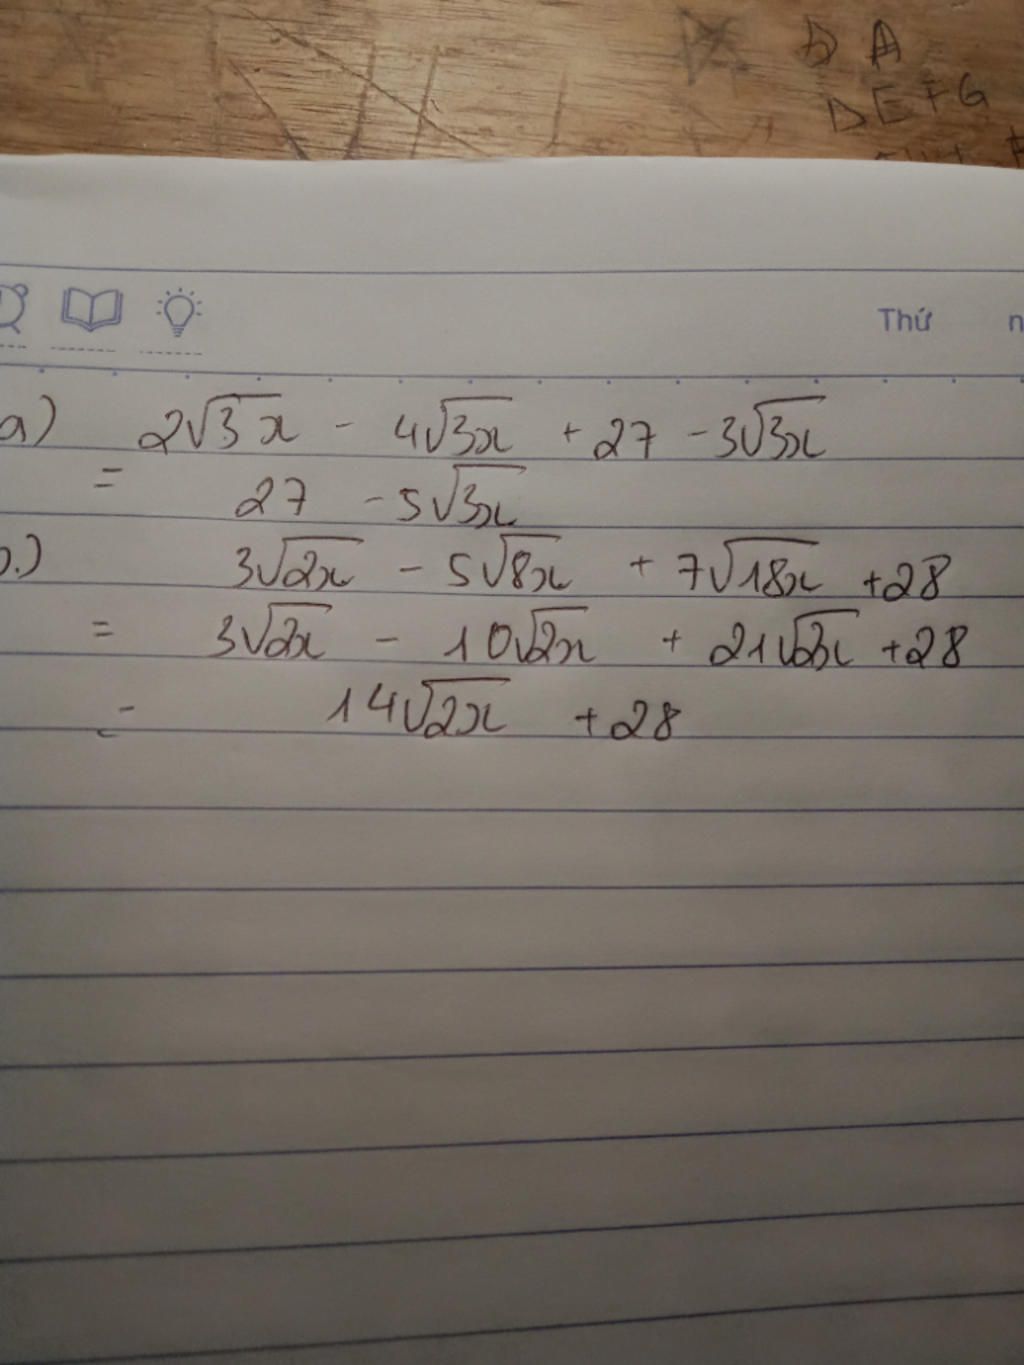 D A
DEFG
Thứ n
a) 2√3x - 4√3x + 27 - 3√3x
= 27 - 5√3x
.) 3√2x - 5√8x + 7√18x + 28
= 3√2x - 10√2x + 21√2x + 28
= 14√2x + 28